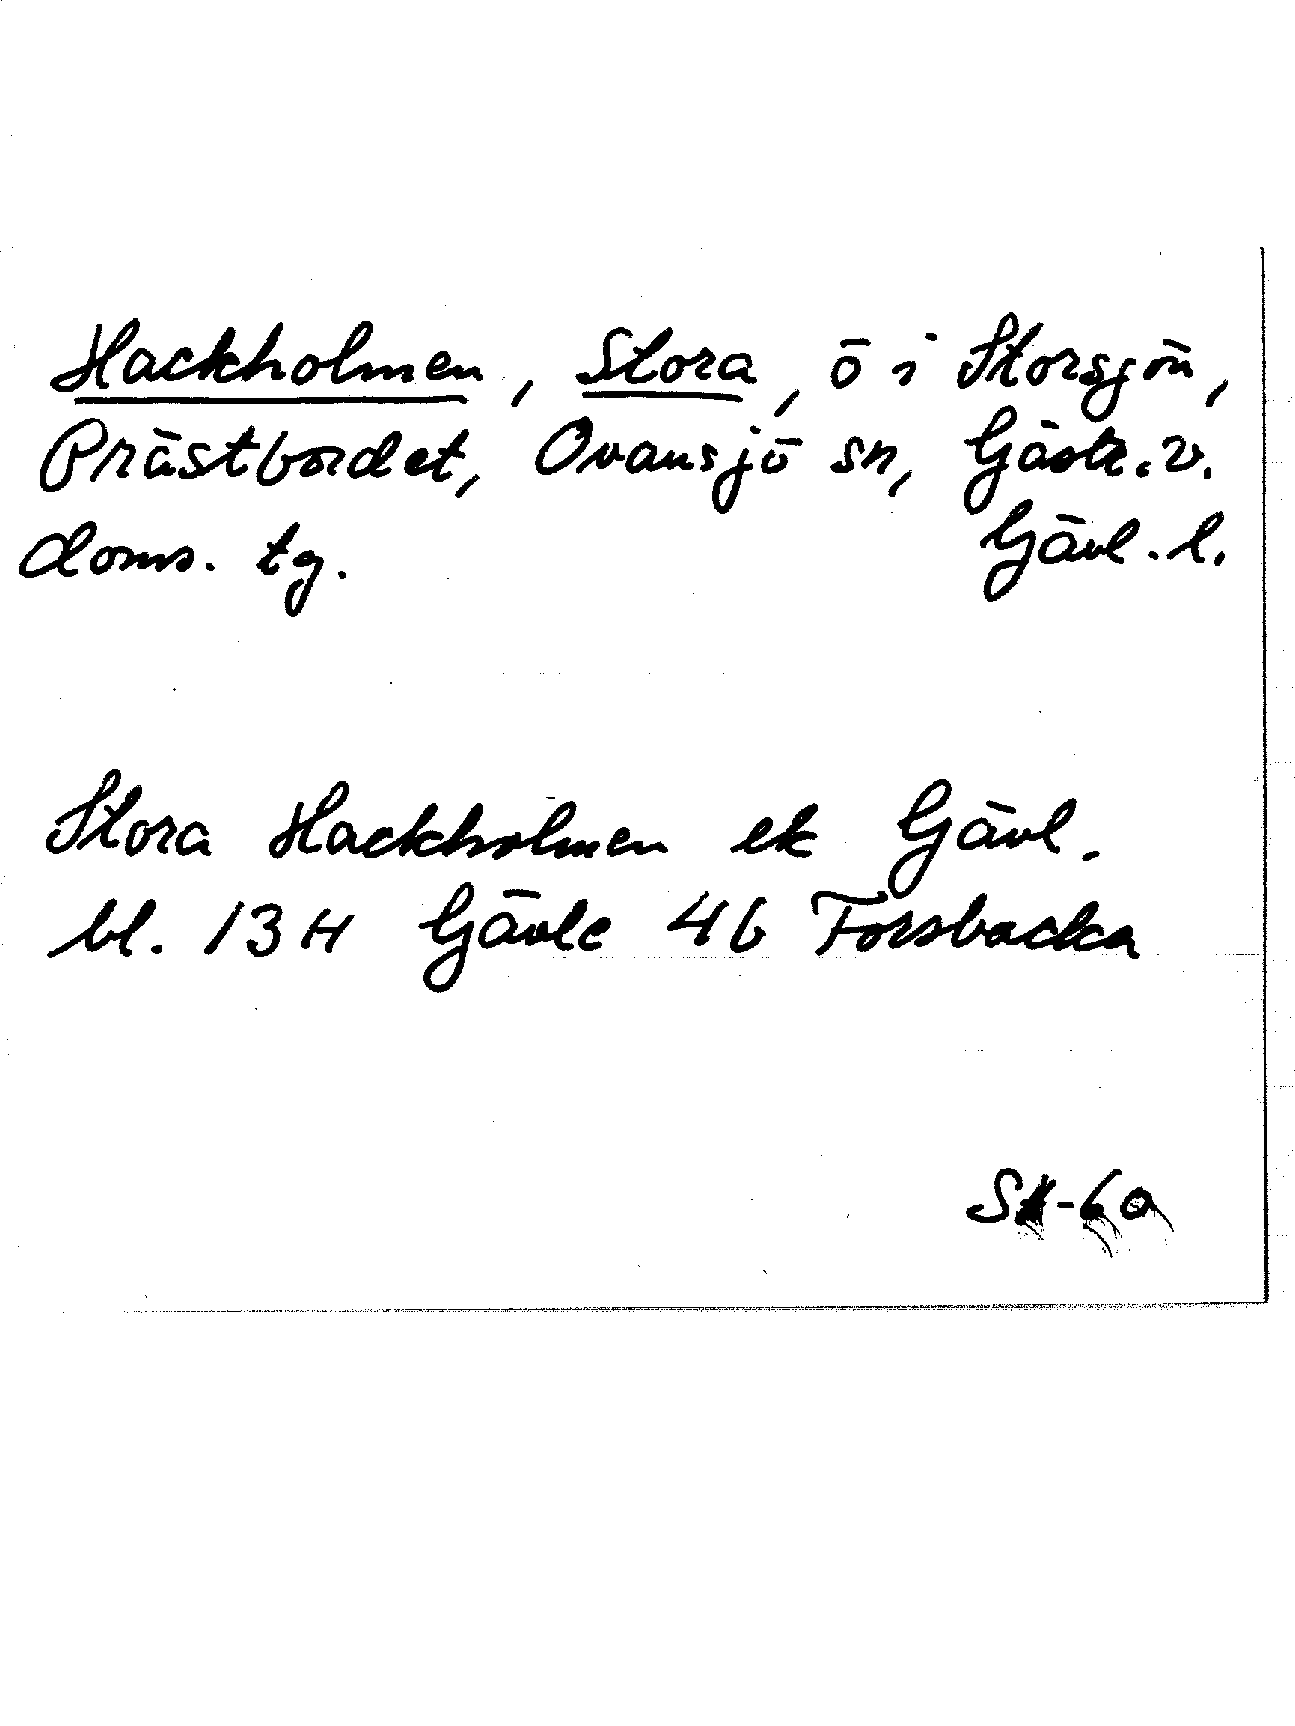 Hackholmen, Stora, ö i Storsjön,
Prästbordet, Ovansjö sn, Gästr. v.
doms. tg. Gävl. l.
Stora Hackholmen ek Gävl.
bl. 13 H Gävle 4 b Forsbacka